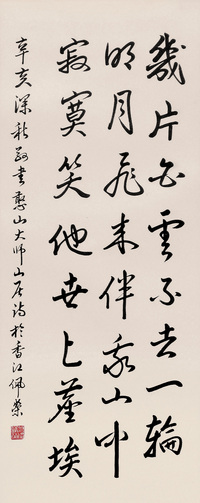 幾片白雲不去一輪
明月飛來伴我山中
寂寞笑他世上塵埃
辛亥深秋敬書憨山大師山居詩於香江佩榮